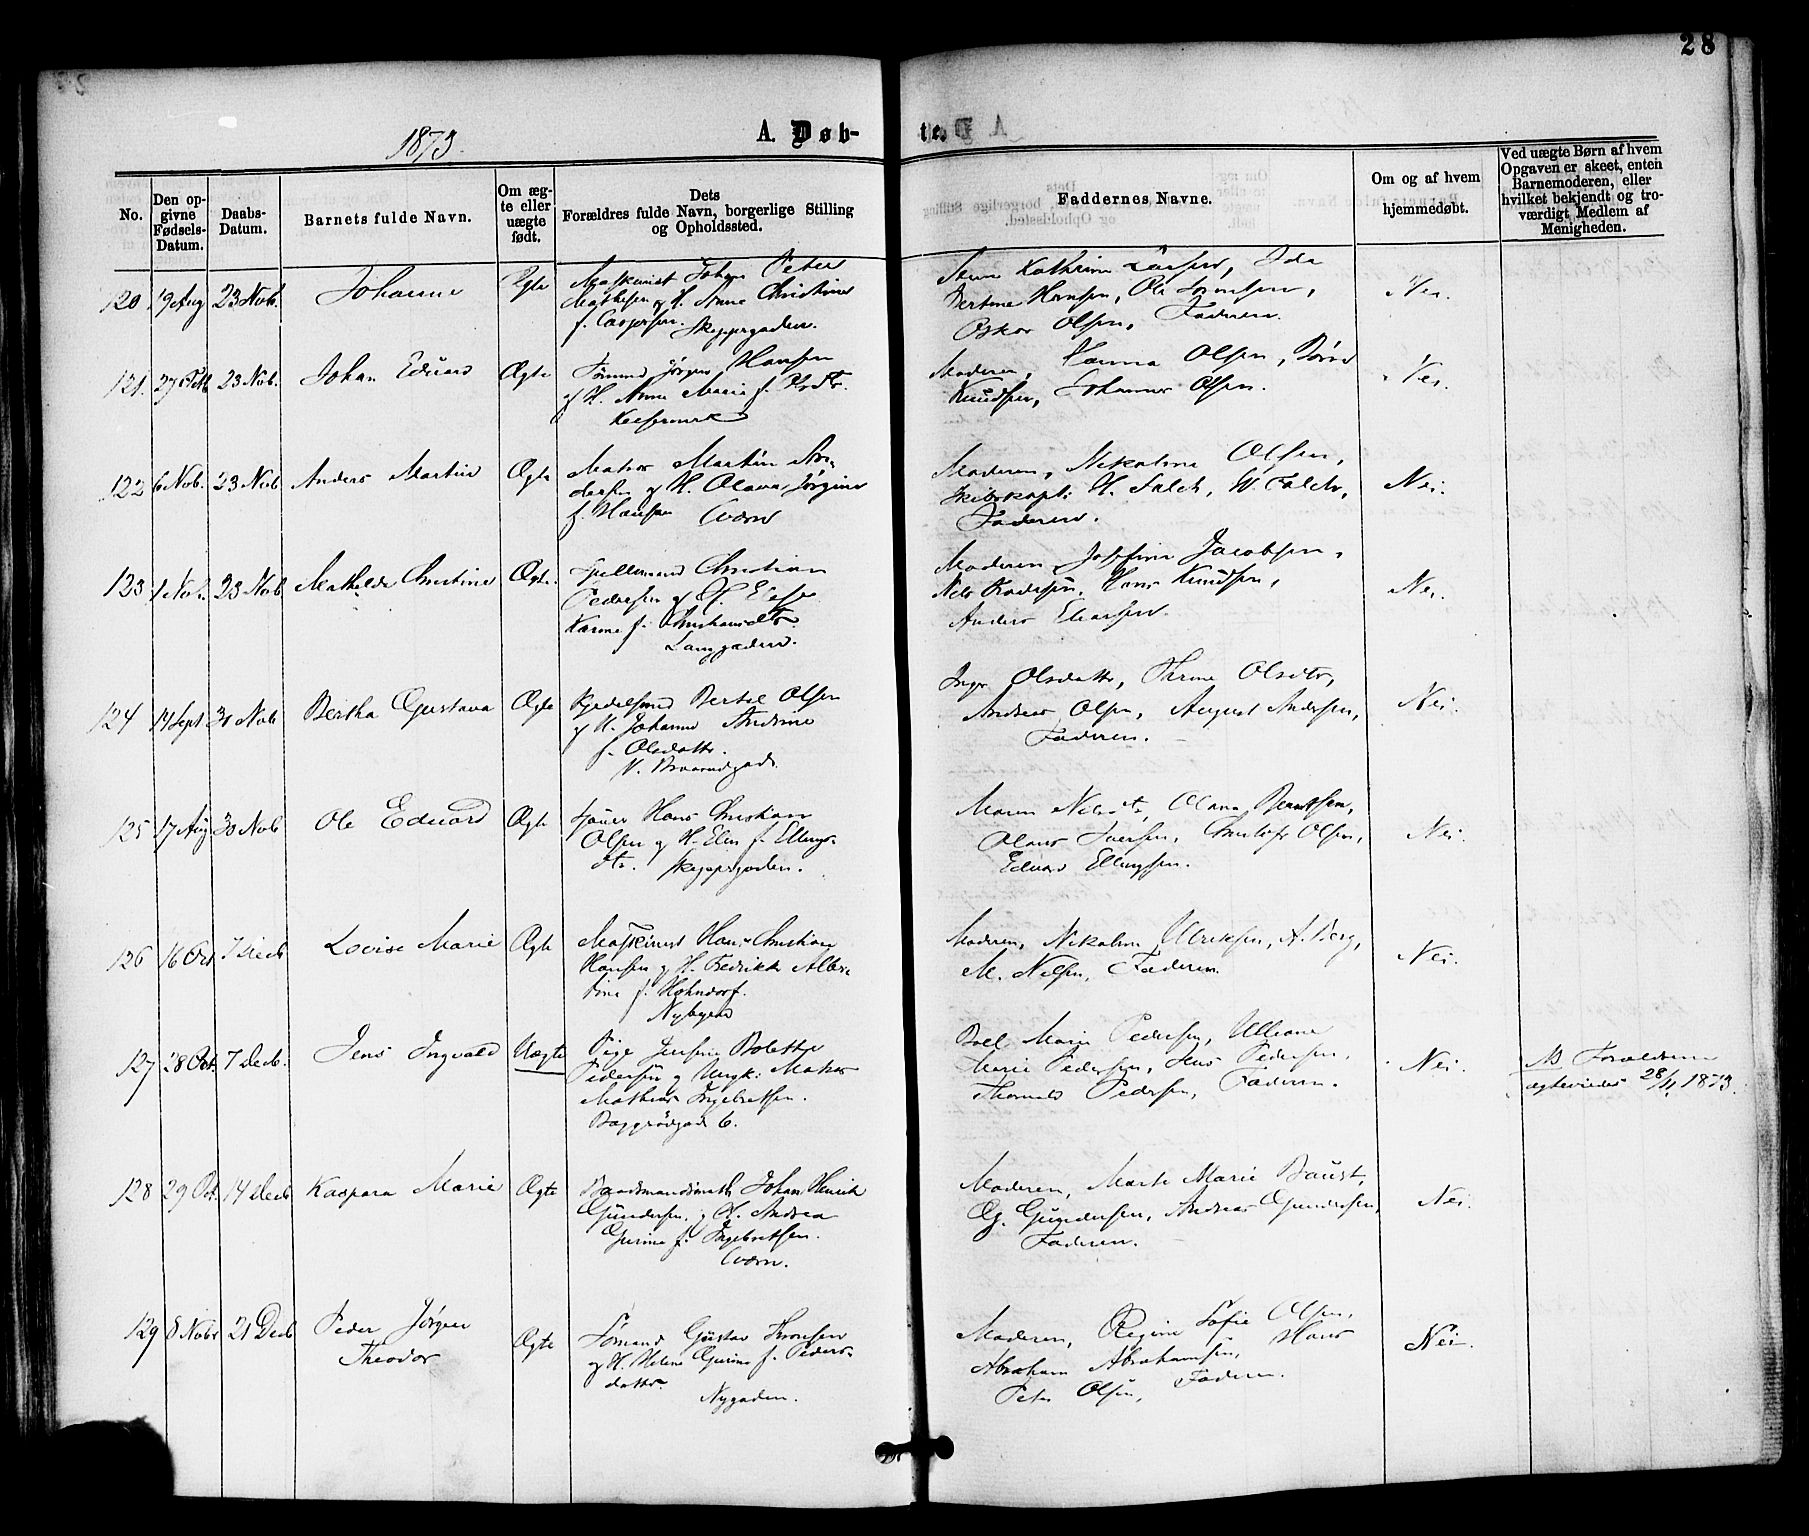 28
1873.
A. Døb-
te.
No.
Den op-
givne
Fødsels-
Datum.
Daabs-
Datum.
Barnets fulde Navn.
Om æg-
te eller
uægte
født.
Dets
Forældres fulde Navn, borgerlige Stilling
og Opholdssted.
Faddernes Navne.
Om og af hvem
hjemmedøbt.
Ved uægte Børn af hvem
Opgaven er skeet, enten
Barnemoderen, eller
hvilket bekjendt og tro-
værdigt Medlem af
Menigheden.
120 19 Aug 23 Nob. Johanne Ægte
Maskinist Johan Peter
Mathesen og H. Anne Christine
f. Caspersen. Skippergaden.
Anne Kathrine Larsen, Ida
Bertine Hansen, Ole
Oskar Olsen, Faderen.
Nei.
121. 27 23 Nob. Johan Eduard Ægte
Tømmd Jørgen Hansen
og H. Anne Marie f.
Moderen, Hanna Olsen,
Knudsen, Johannes Olsen.
Nei.
122 6 Nob. 23 Nob Anders Martin Ægte
Matros Martin An-
dersen og H. Olava Jørgine
f. Hansen Cværn
Moderen, Nikoline Olsen,
Skibskapt: H. Falch, W. Falch,
Faderen.
Nei.
123 1 Nob. 23 Nob Mathilde Christine Ægte.
Spillemand Christian
Pedersen og H. Elise
Karine f. Christiansdtr.
Langgaden.
Moderen, Josefine Jacobsen,
Nils Hans Knudsen,
Anders Eliassen.
Nei.
124 14 Sept 30 Nob Bertha Gustava Ægte
Bertel Olsen
og H. Johanne Andrine
f. Olsdatter.
N. Braarudgade
Inger Olsdatter, Olsdtr,
Andreas Olsen, August Andersen,
Faderen.
Nei.
125 17 Aug 30 Nob Ole Eduard Ægte
Hans Christian
Olsen og H. Elen f. Ellings-
dtr. Skippergaden.
Maren Nilsdtr, Olava Berntsen,
Olaus Iversen, Christofer Olsen,
Eduard Ellingsen.
Nei.
126 16 Oct 7 Decb Lovise Marie Ægte
Maskinist Hans Christian
Hansen og H. Fredrikke Alber-
tine f. Hohndorf.
Nybyen
Moderen, Nikoline Ulriksen, A. Berg,
M. Nilsen, Faderen.
Nei.
127 28 Oct. 7 Decb. Jens Ingvald Uægte
Pige Jensine Bolette
Pedersen og Ungk: Matros
Mathias Ingebretsen.
Baggrødgad 6.
Boel Marie Pedersen, Ulliane
Marie Pedersen, Jens Pedersen,
Thorvald Pedersen, Faderen.
Nei.
NB Forældrene
ægteviedes 28/11 1873.
128 29 Oct. 14 Decb Kaspara Marie Ægte
Baadsmandsmath Johan Henrik
Gundersen, og H. Andrea
Gurine f. Ingebretsen.
Cværn.
Moderen, Marte Marie Baust,
G. Gundersen, Andreas Gundersen,
Faderen.
Nei.
129 8 Nobr 21 Decb Peder Jørgen
Theodor
Ægte
Tømmd Gustav Thronsen
og H. Helene Gurine f. Peders-
datter.
Nygaden.
Moderen, Regine Sofie Olsen,
Abraham Abrahamsen, Hans
Peter Olsen, Faderen.
Nei.